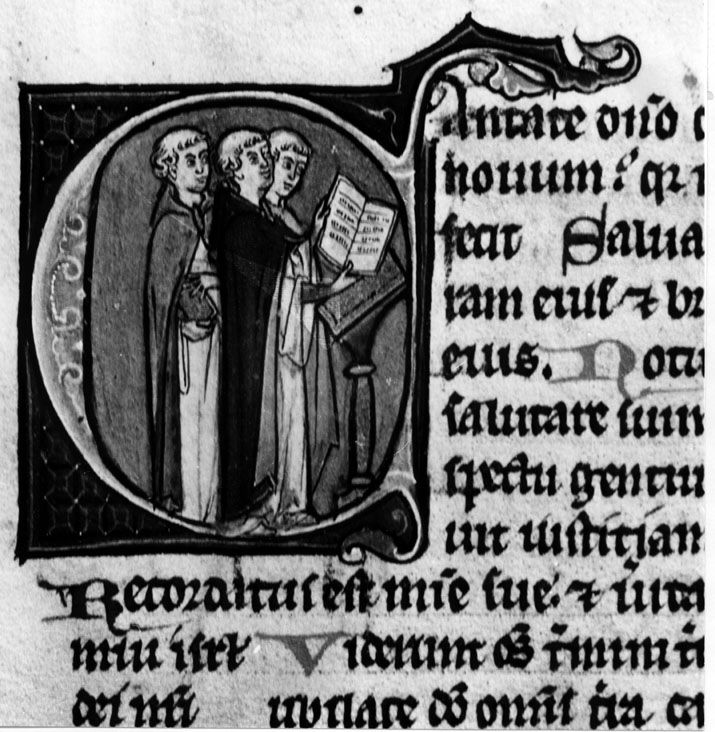 Cantate dn̄o c
nouum: qꝛ m
fecit Salua
ram eius ⁊ br
eius. Notu
salutare suum
spectu gentiu
uit iustitiam
Recordatus est mie sue: ⁊ uita
miu isrl Viderunt om̄s t̄mini t̄
dei nr̄i iubilate dō omīs t̄ra ca